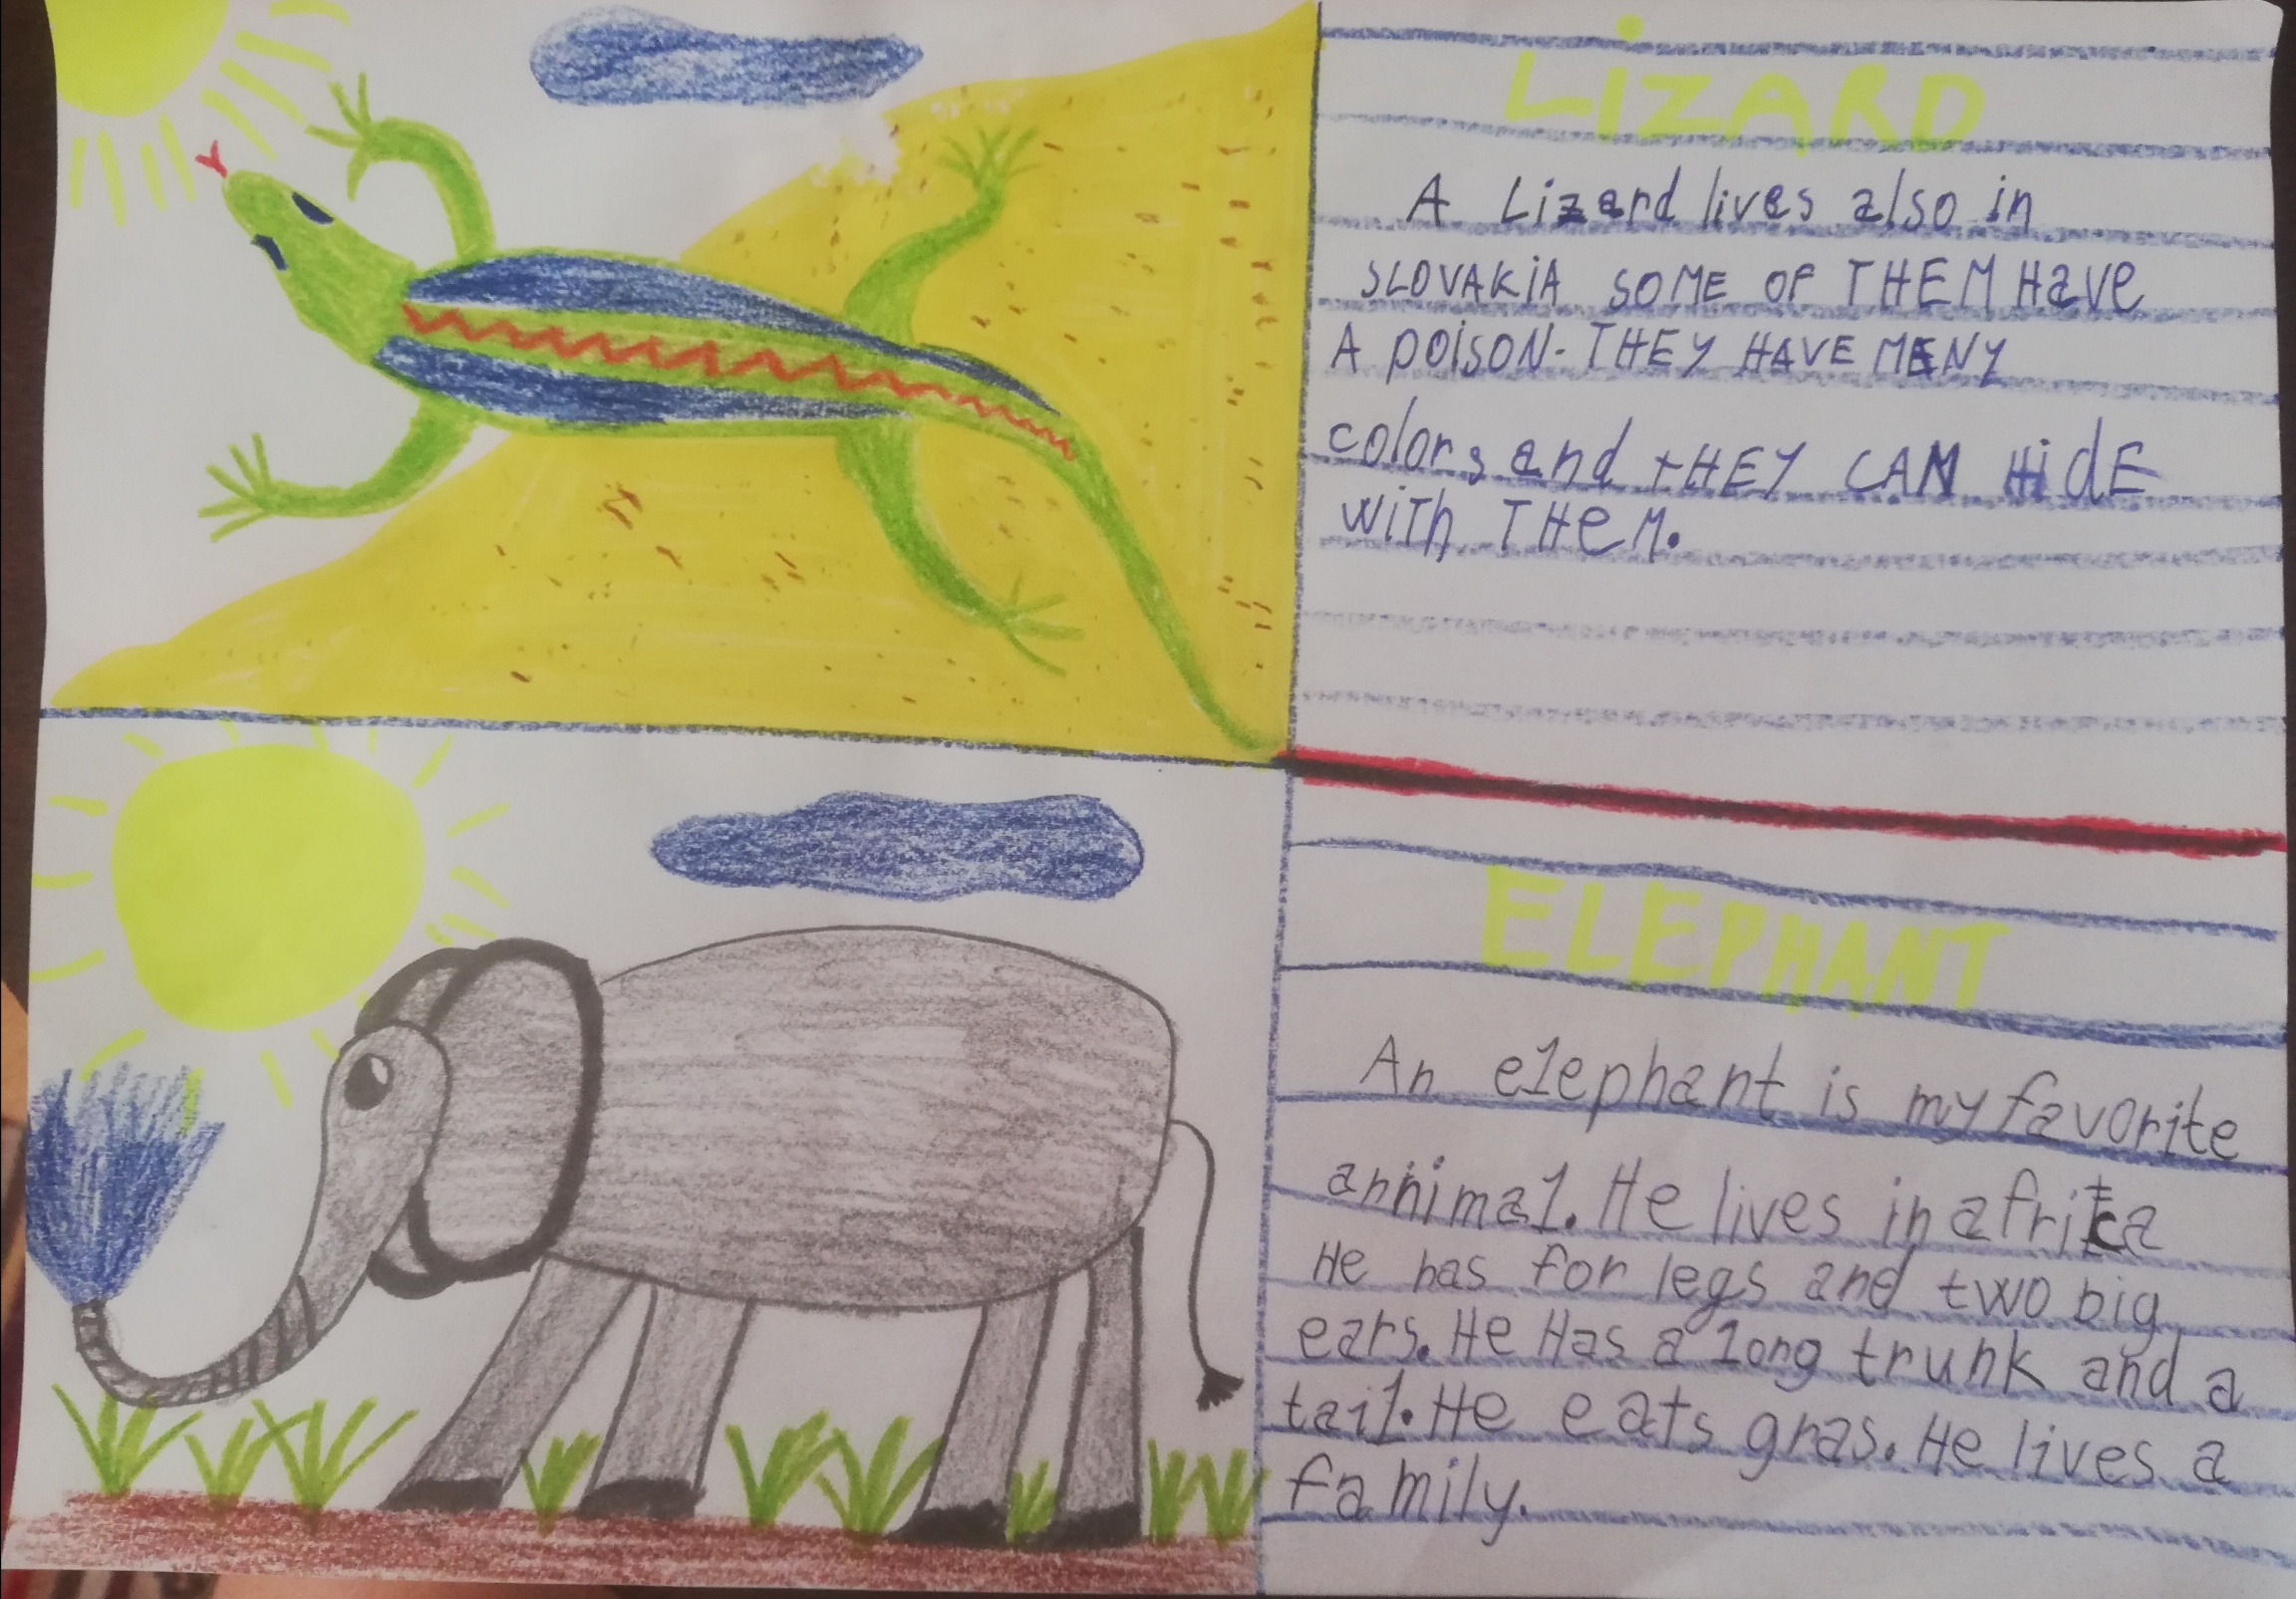 LiZARD
A Lizard lives also in
SLOVAKiA SOME OF THEM Have
A poisoN. THEY HAVE MENY
colors and tHEY CAN HidE
WiTh THeM.
ELEPHANT
An elephant is my favorite
annimal. He lives in afrika
He has for legs and two big
ears. He Has a long trunk and a
tail. He eats gras. He lives a
family.